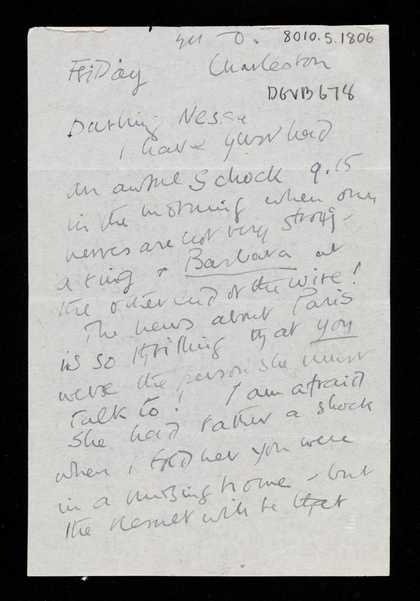 8010.5.1806
Friday Charleston
DGVB678
Darling Nessa
I have just had
an awful Schock 9.15
in the morning when ones
nerves are not very strong -
a ring & Barbara at
the other end of the wire!
The news about Paris
is so thrilling that you
were the person she must
talk to! I am afraid
she had rather a shock
when I told her you were
in a nursing home - but
the will be that